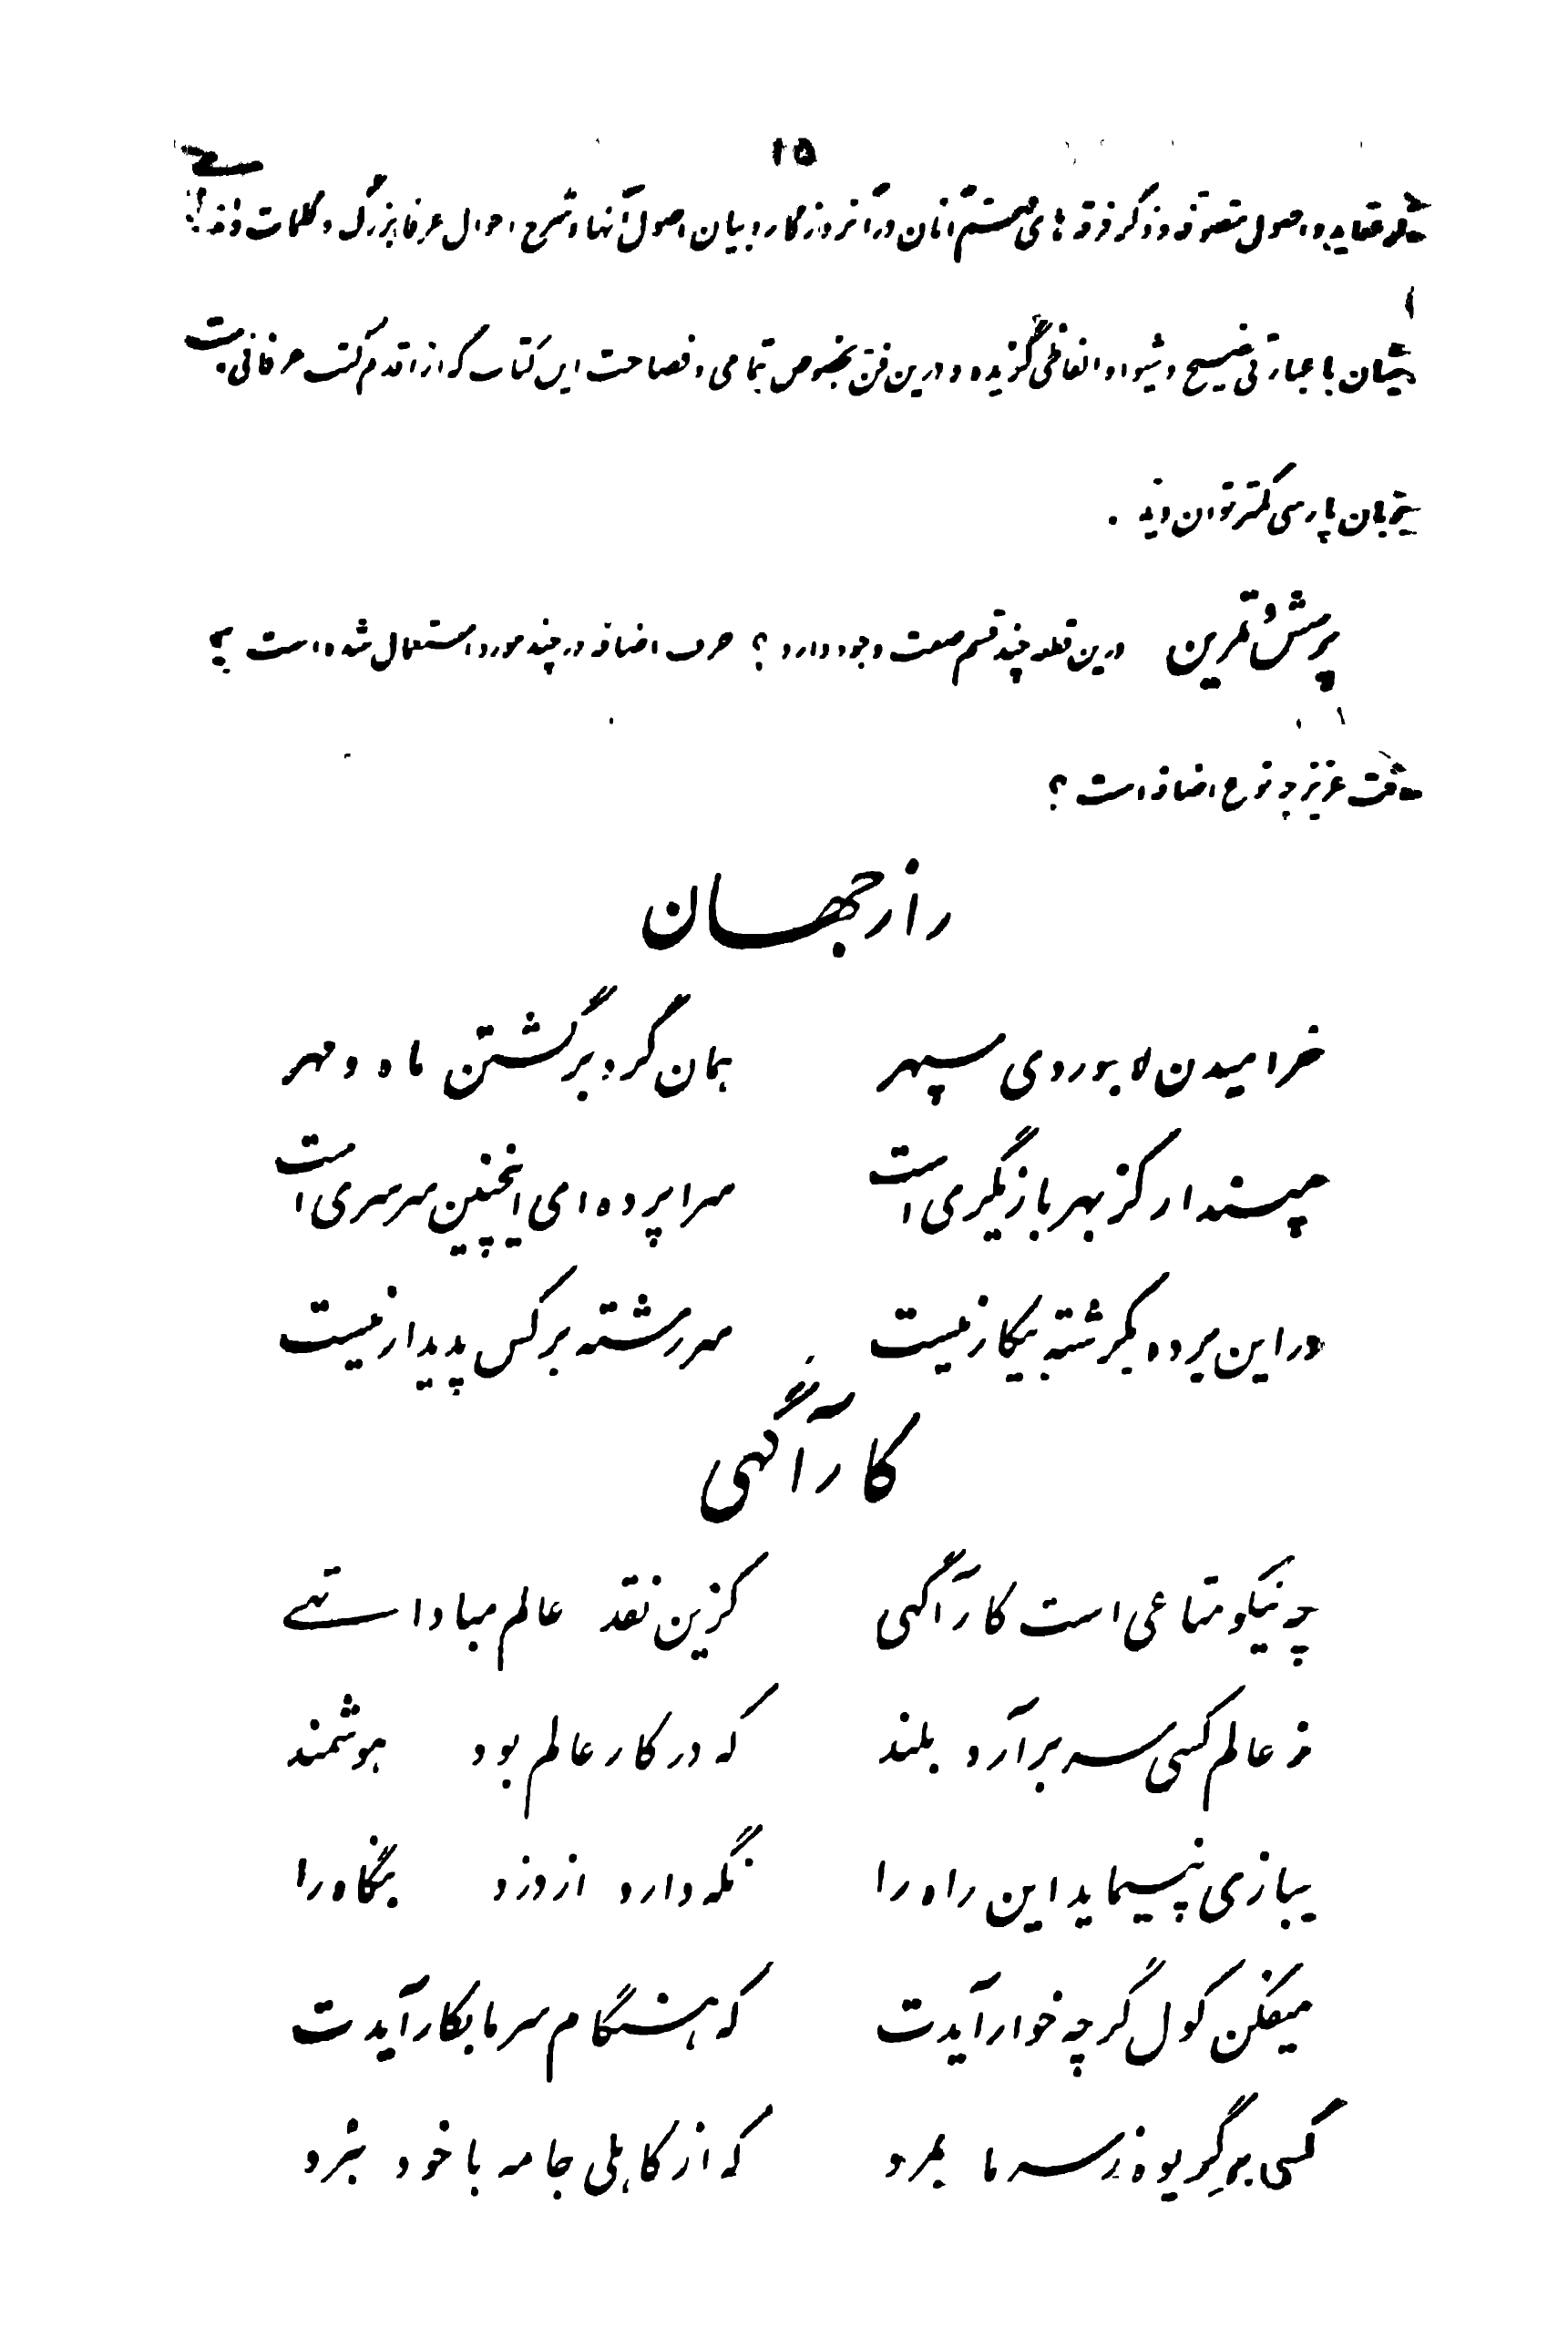 ۱۵
عقاید و اصول متصوفه و ذکر فرقه های مهم آنان در آنروزگار و بیان اصول آنها و شرح احوال عرفا بزرگ و کلمات
ایشان با عبارتی فصیح و شیوا و الفاظی گزیده و درین فن بخصوص بتمامی و فصاحت این کتاب که از اقدم کتب عرفانی است
بزبان پارسی کمتر توان دید .
پرسش و تمرین درین قطعه چند قسم صفت وجود دارد ؟ حرف اضافه در چند مورد استعمال شده است ؟
وقت عزیز چه نوع اضافه است ؟
راز جهان
خرامیدن لاجوردی سپهر همان گرد برگشتن ماه و مهر
مپندار کز بهر بازیگری است سراپرده ای اینچنین سرسری است
در این پرده یکرشته بیکار نیست سر رشته بر کس پدیدار نیست
کار آگهی
چه نیکو متاعی است کار آگهی کزین نقد عالم مبادا تهی
ز عالم کسی سر برآرد بلند که در کار عالم بود هوشمند
ببازی نپیماید این راه را نگه دارد از دزد بنگاه را
میفکن کول گرچه خوار آیدت که هنگام سرما بکار آیدت
کسی بر گریوه ز سرما بمرد که از کاهلی جامه با خود نبرد